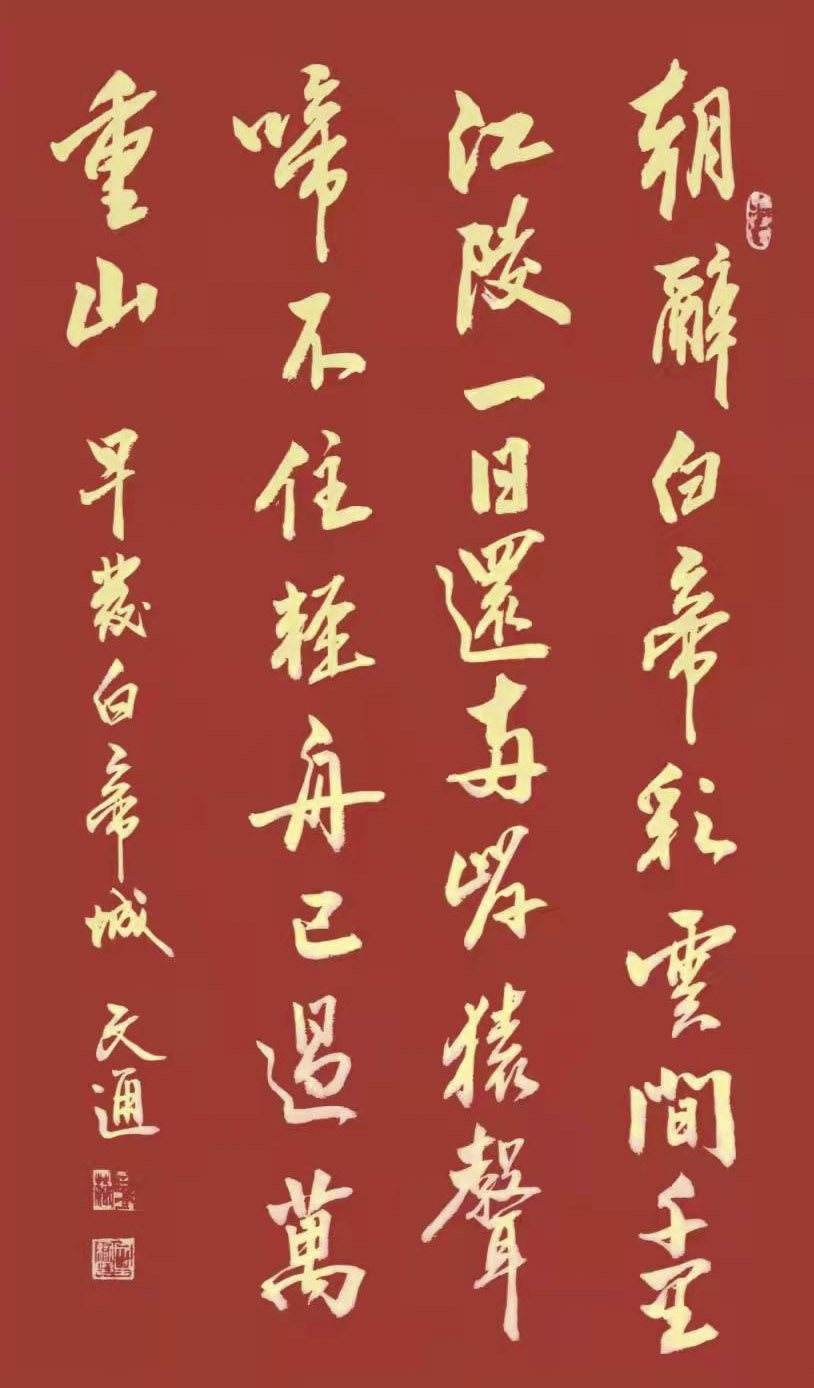 朝辭白帝彩雲間千里
江陵一日還兩岸猿聲
啼不住輕舟已過萬
重山
早發白帝城
文通